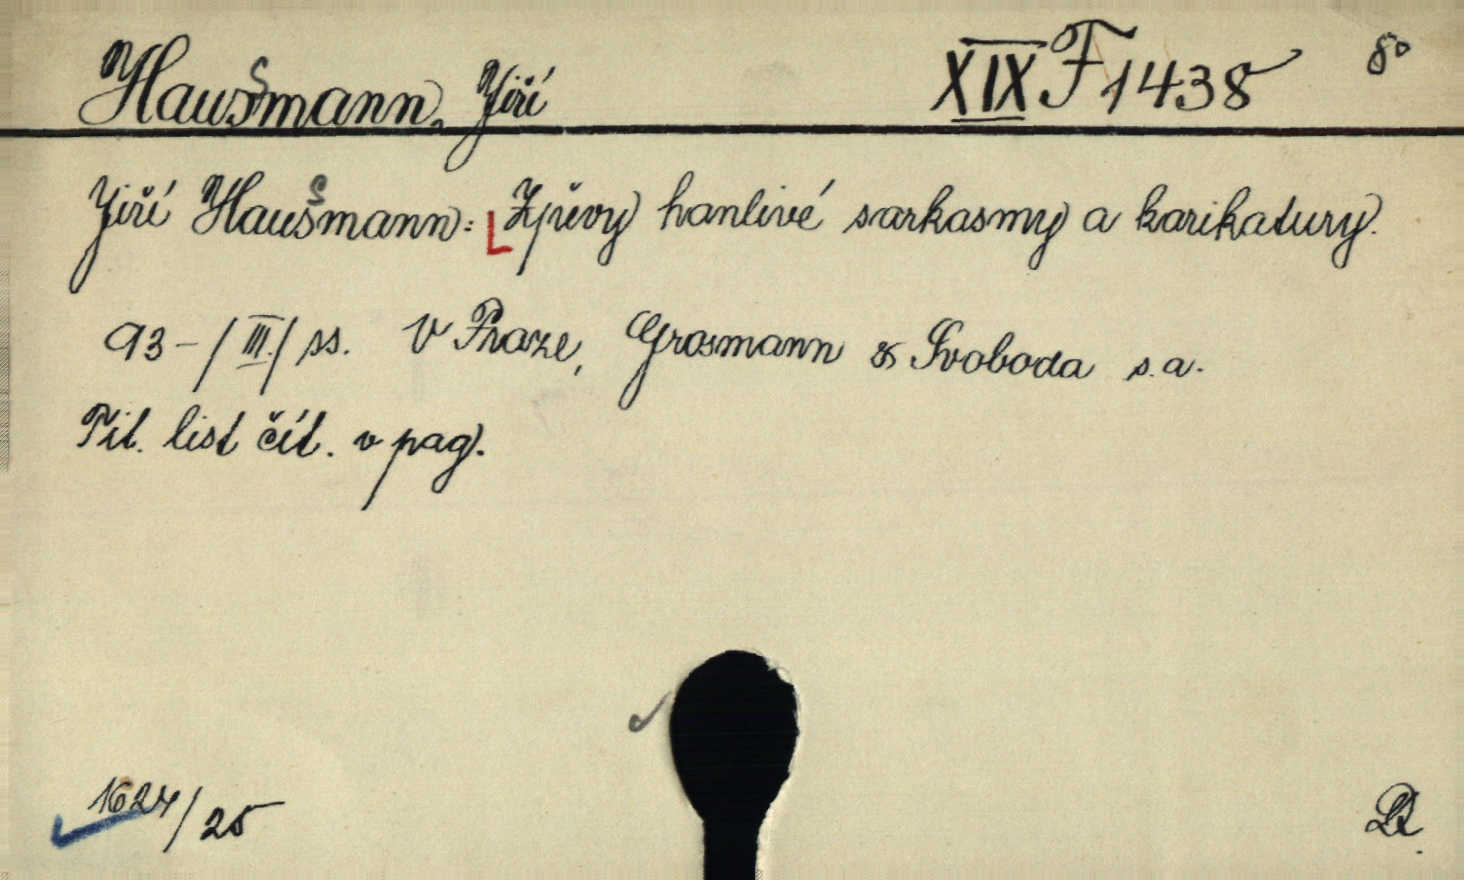 Haussmann, Jiří XIX F 1438 8°
Jiří Haussmann: Zpěvy hanlivé sarkasmy a karikatury.
93-/III./ ss. V Praze, Grosmann & Svoboda s.a.
Tit. list čít. v pag.
1624/25